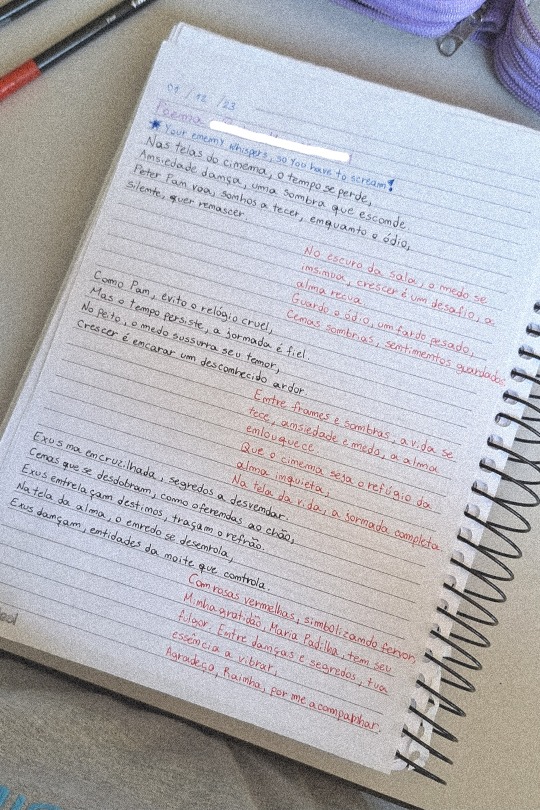 01/12/23
Poema
* Your enemy whispers, so you have to scream!
Nas telas do cinema, o tempo se perde,
Ansiedade dança, uma sombra que esconde
Peter Pan voa, sonhos a tecer, enquanto o ódio,
silente, quer renascer
No escuro da sala, o medo se
insinua, crescer é um desafio, a
alma recua.
Guardo o ódio, um fardo pesado,
Cenas sombrias, sentimentos guardados.
Como Pan, evito o relógio cruel,
Mas o tempo persiste, a jornada é fiel.
No peito, o medo sussurra seu temor,
Crescer é encarar um desconhecido ardor.
Entre frames e sombras, a vida se
tece, ansiedade e medo, a alma
enlouquece.
Que o cinema seja o refúgio da
alma inquieta,
Na tela da vida, a jornada completa.
Exus na encruzilhada, segredos a desvendar.
Cenas que se desdobram, como oferendas ao chão,
Exus entrelaçam destinos, traçam o refrão.
Na tela da alma, o enredo se desenrola,
Exus dançam, entidades da noite que controla.
Com rosas vermelhas, simbolizando fervor,
Minha gratidão, Maria Padilha, tem seu
fulgor. Entre danças e segredos, tua
essência a vibrar,
Agradeço, Rainha, por me acompanhar.